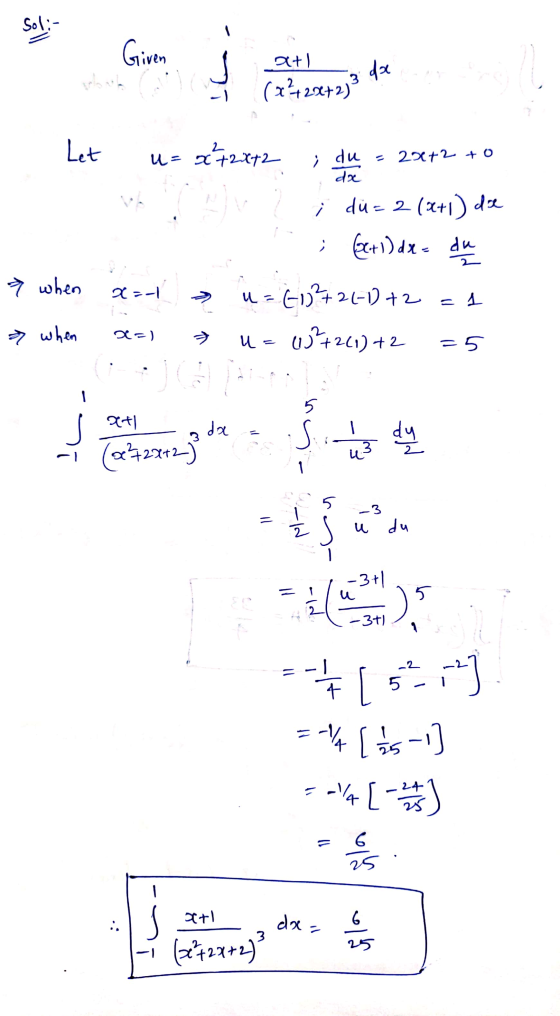 Sol:-
Given ∫_{-1}^{1} (x+1)/(x²+2x+2)³ dx
Let u = x²+2x+2 ; du/dx = 2x+2+0
; du = 2(x+1) dx
; (x+1)dx = du/2
⇒ when x=-1 ⇒ u = (-1)²+2(-1)+2 = 1
⇒ when x=1 ⇒ u = (1)²+2(1)+2 = 5
∫_{-1}^{1} (x+1)/(x²+2x+2)³ dx = ∫_{1}^{5} 1/u³ du/2
= 1/2 ∫_{1}^{5} u^{-3} du
= 1/2 (u^{-3+1}/(-3+1))_{1}^{5}
= -1/4 [5^{-2} - 1^{-2}]
= -1/4 [1/25 - 1]
= -1/4 [-24/25]
= 6/25 .
∴ ∫_{-1}^{1} (x+1)/(x²+2x+2)³ dx = 6/25